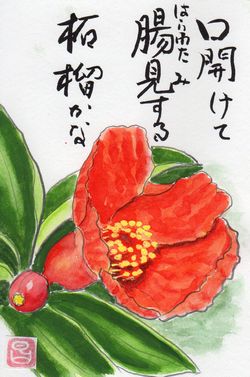 口開けて
はらわたみ
腸見する
柘榴かな